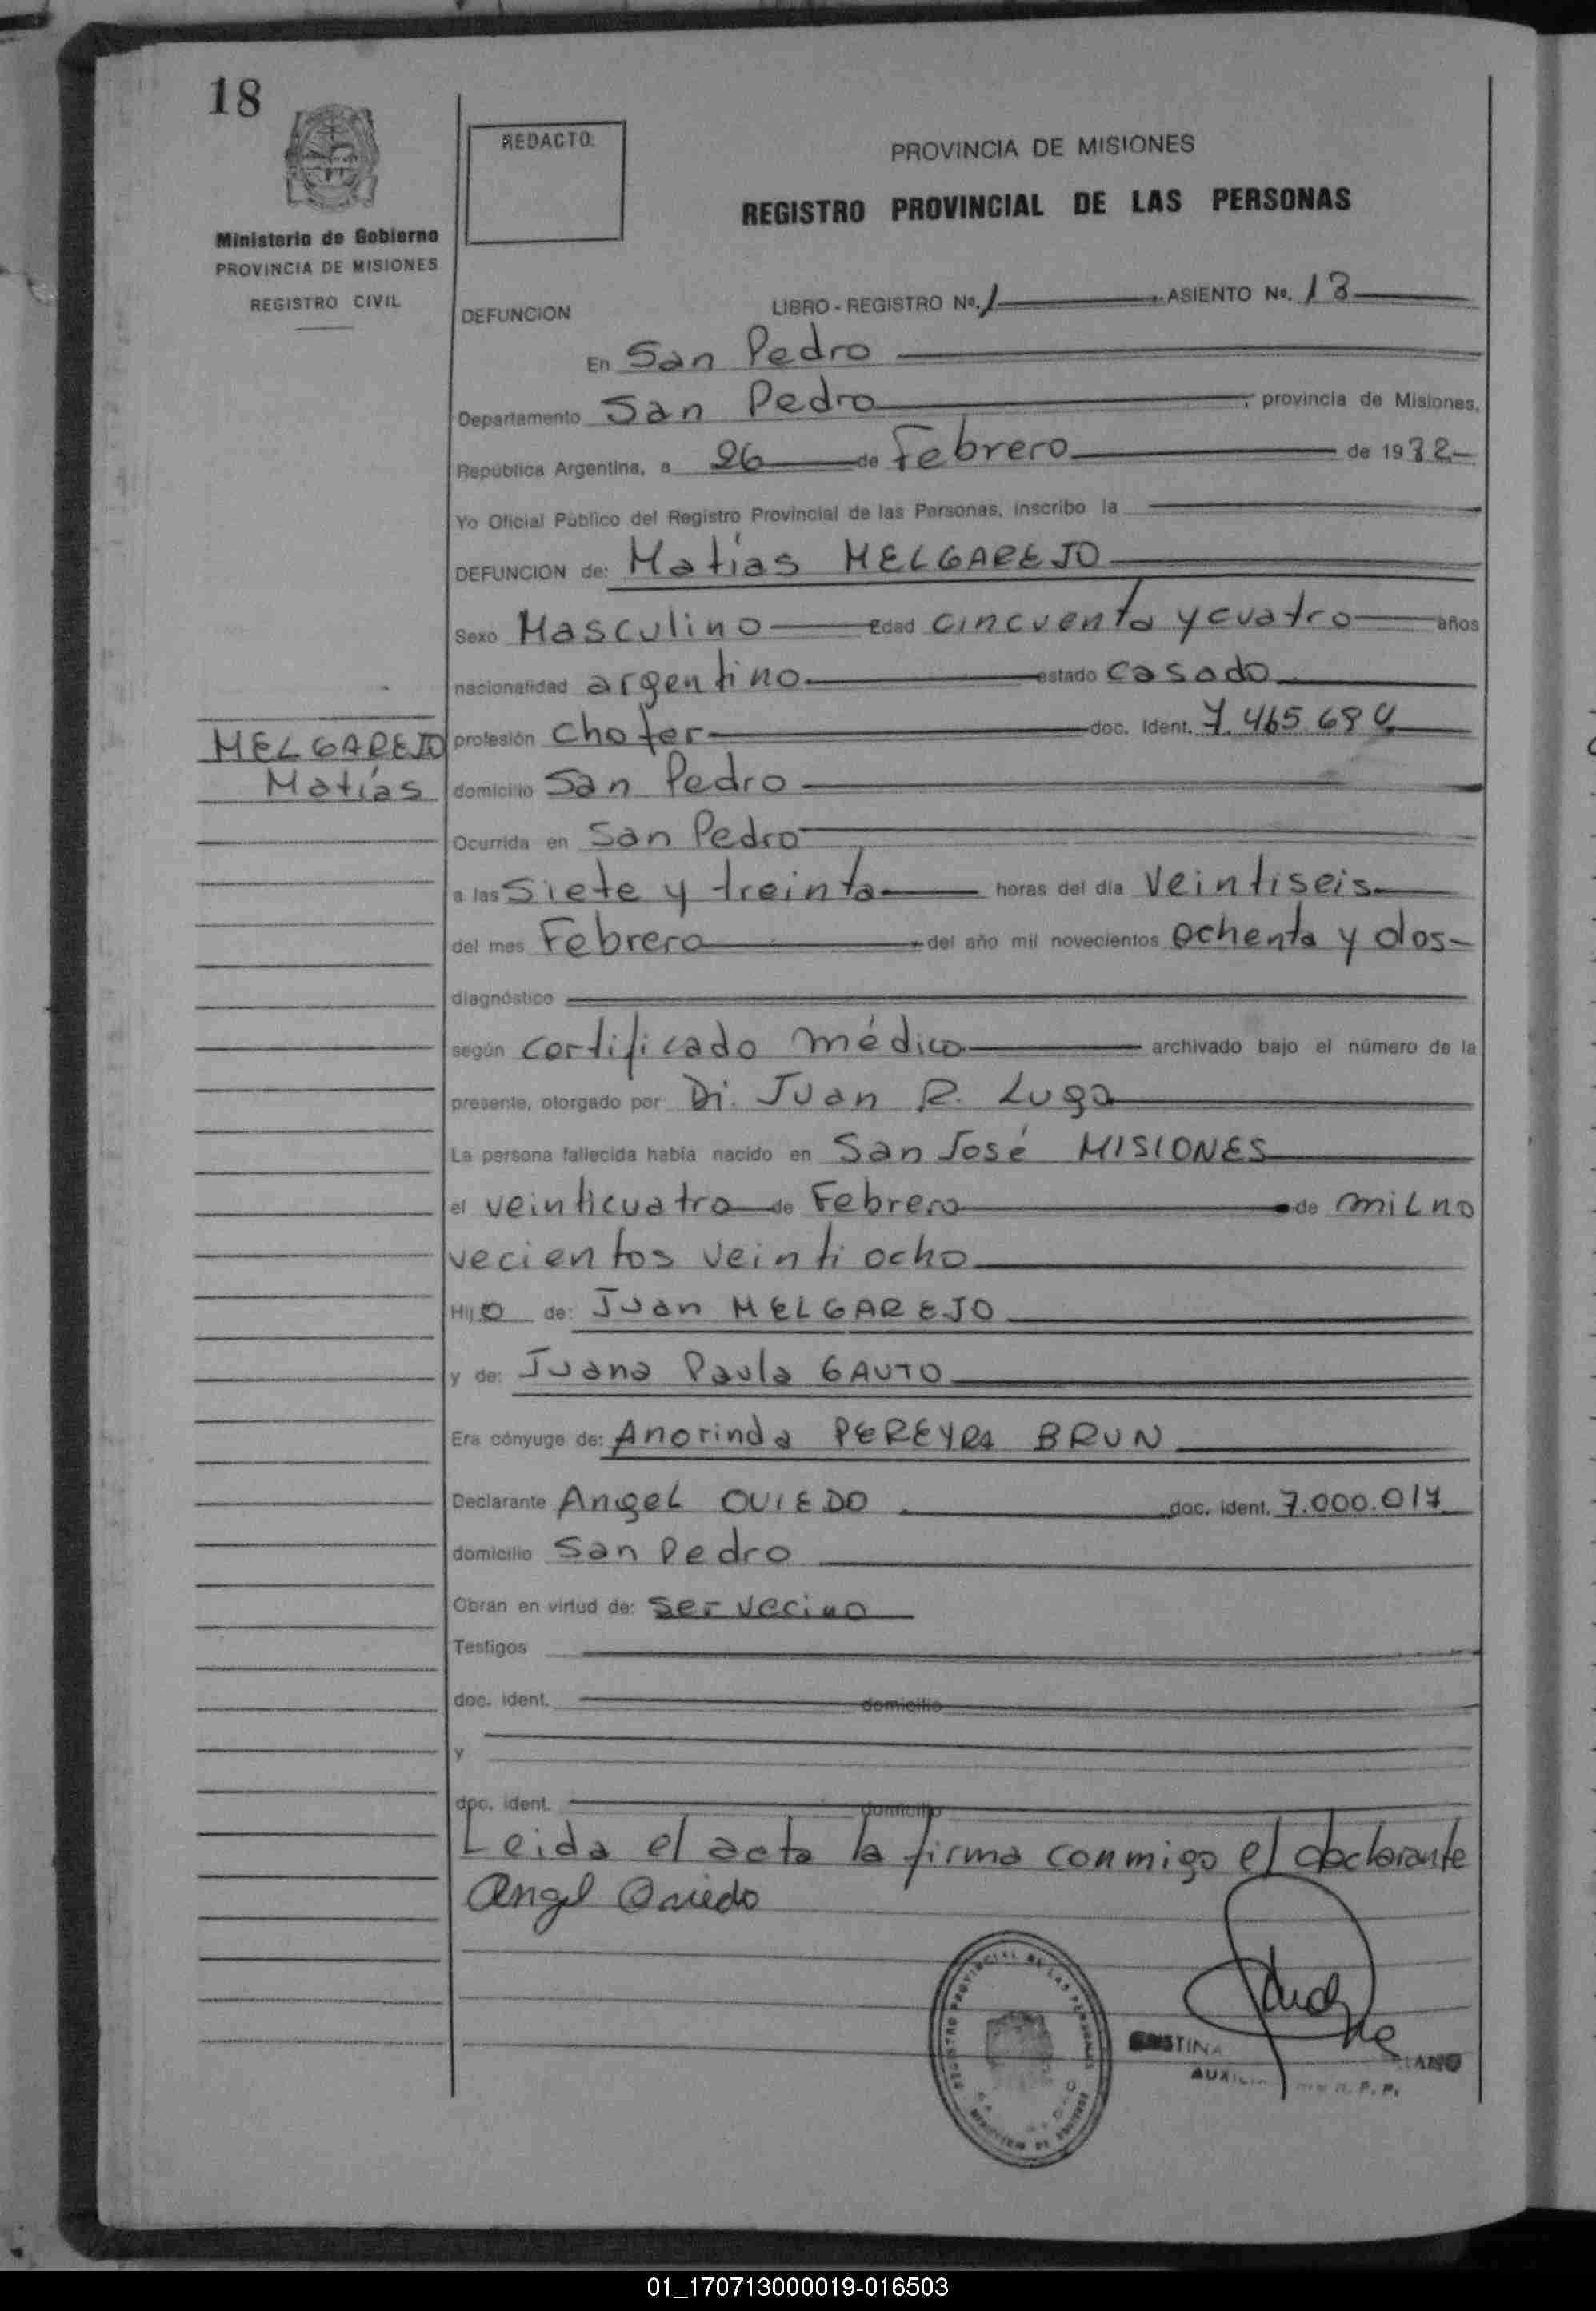 18
REDACTO:
PROVINCIA DE MISIONES
REGISTRO PROVINCIAL DE LAS PERSONAS
Ministerio de Gobierno
PROVINCIA DE MISIONES
REGISTRO CIVIL
DEFUNCION LIBRO - REGISTRO Nº. 1 ASIENTO Nº. 13
En San Pedro
Departamento San Pedro, provincia de Misiones,
República Argentina, a 26 de Febrero de 1982
Yo Oficial Público del Registro Provincial de las Personas, inscribo la
DEFUNCION de: Matías MELGAREJO
Sexo Masculino Edad cincuenta y cuatro años
nacionalidad argentino estado casado
MELGAREJO
Matías
profesión chofer doc. Ident. 7.465.684
domicilio San Pedro
Ocurrida en San Pedro
a las Siete y treinta horas del día veintiseis
del mes Febrero del año mil novecientos ochenta y dos
diagnóstico
según certificado médico archivado bajo el número de la
presente, otorgado por Dr. Juan R. Lugo
La persona fallecida había nacido en San José MISIONES
el veinticuatro de Febrero de mil no
vecientos veintiocho
Hijo de: Juan MELGAREJO
y de: Juana Paula GAUTO
Era cónyuge de: Anorinda PEREYRA BRUN
Declarante Angel OVIEDO doc. ident. 7.000.017
domicilio San Pedro
Obran en virtud de: ser vecino
Testigos
doc. ident. domicilio
y
doc. ident. domicilio
Leida el acta la firma conmigo el declarante
Angel Oviedo
REGISTRO PROVINCIAL DE LAS PERSONAS
01_170713000019-016503